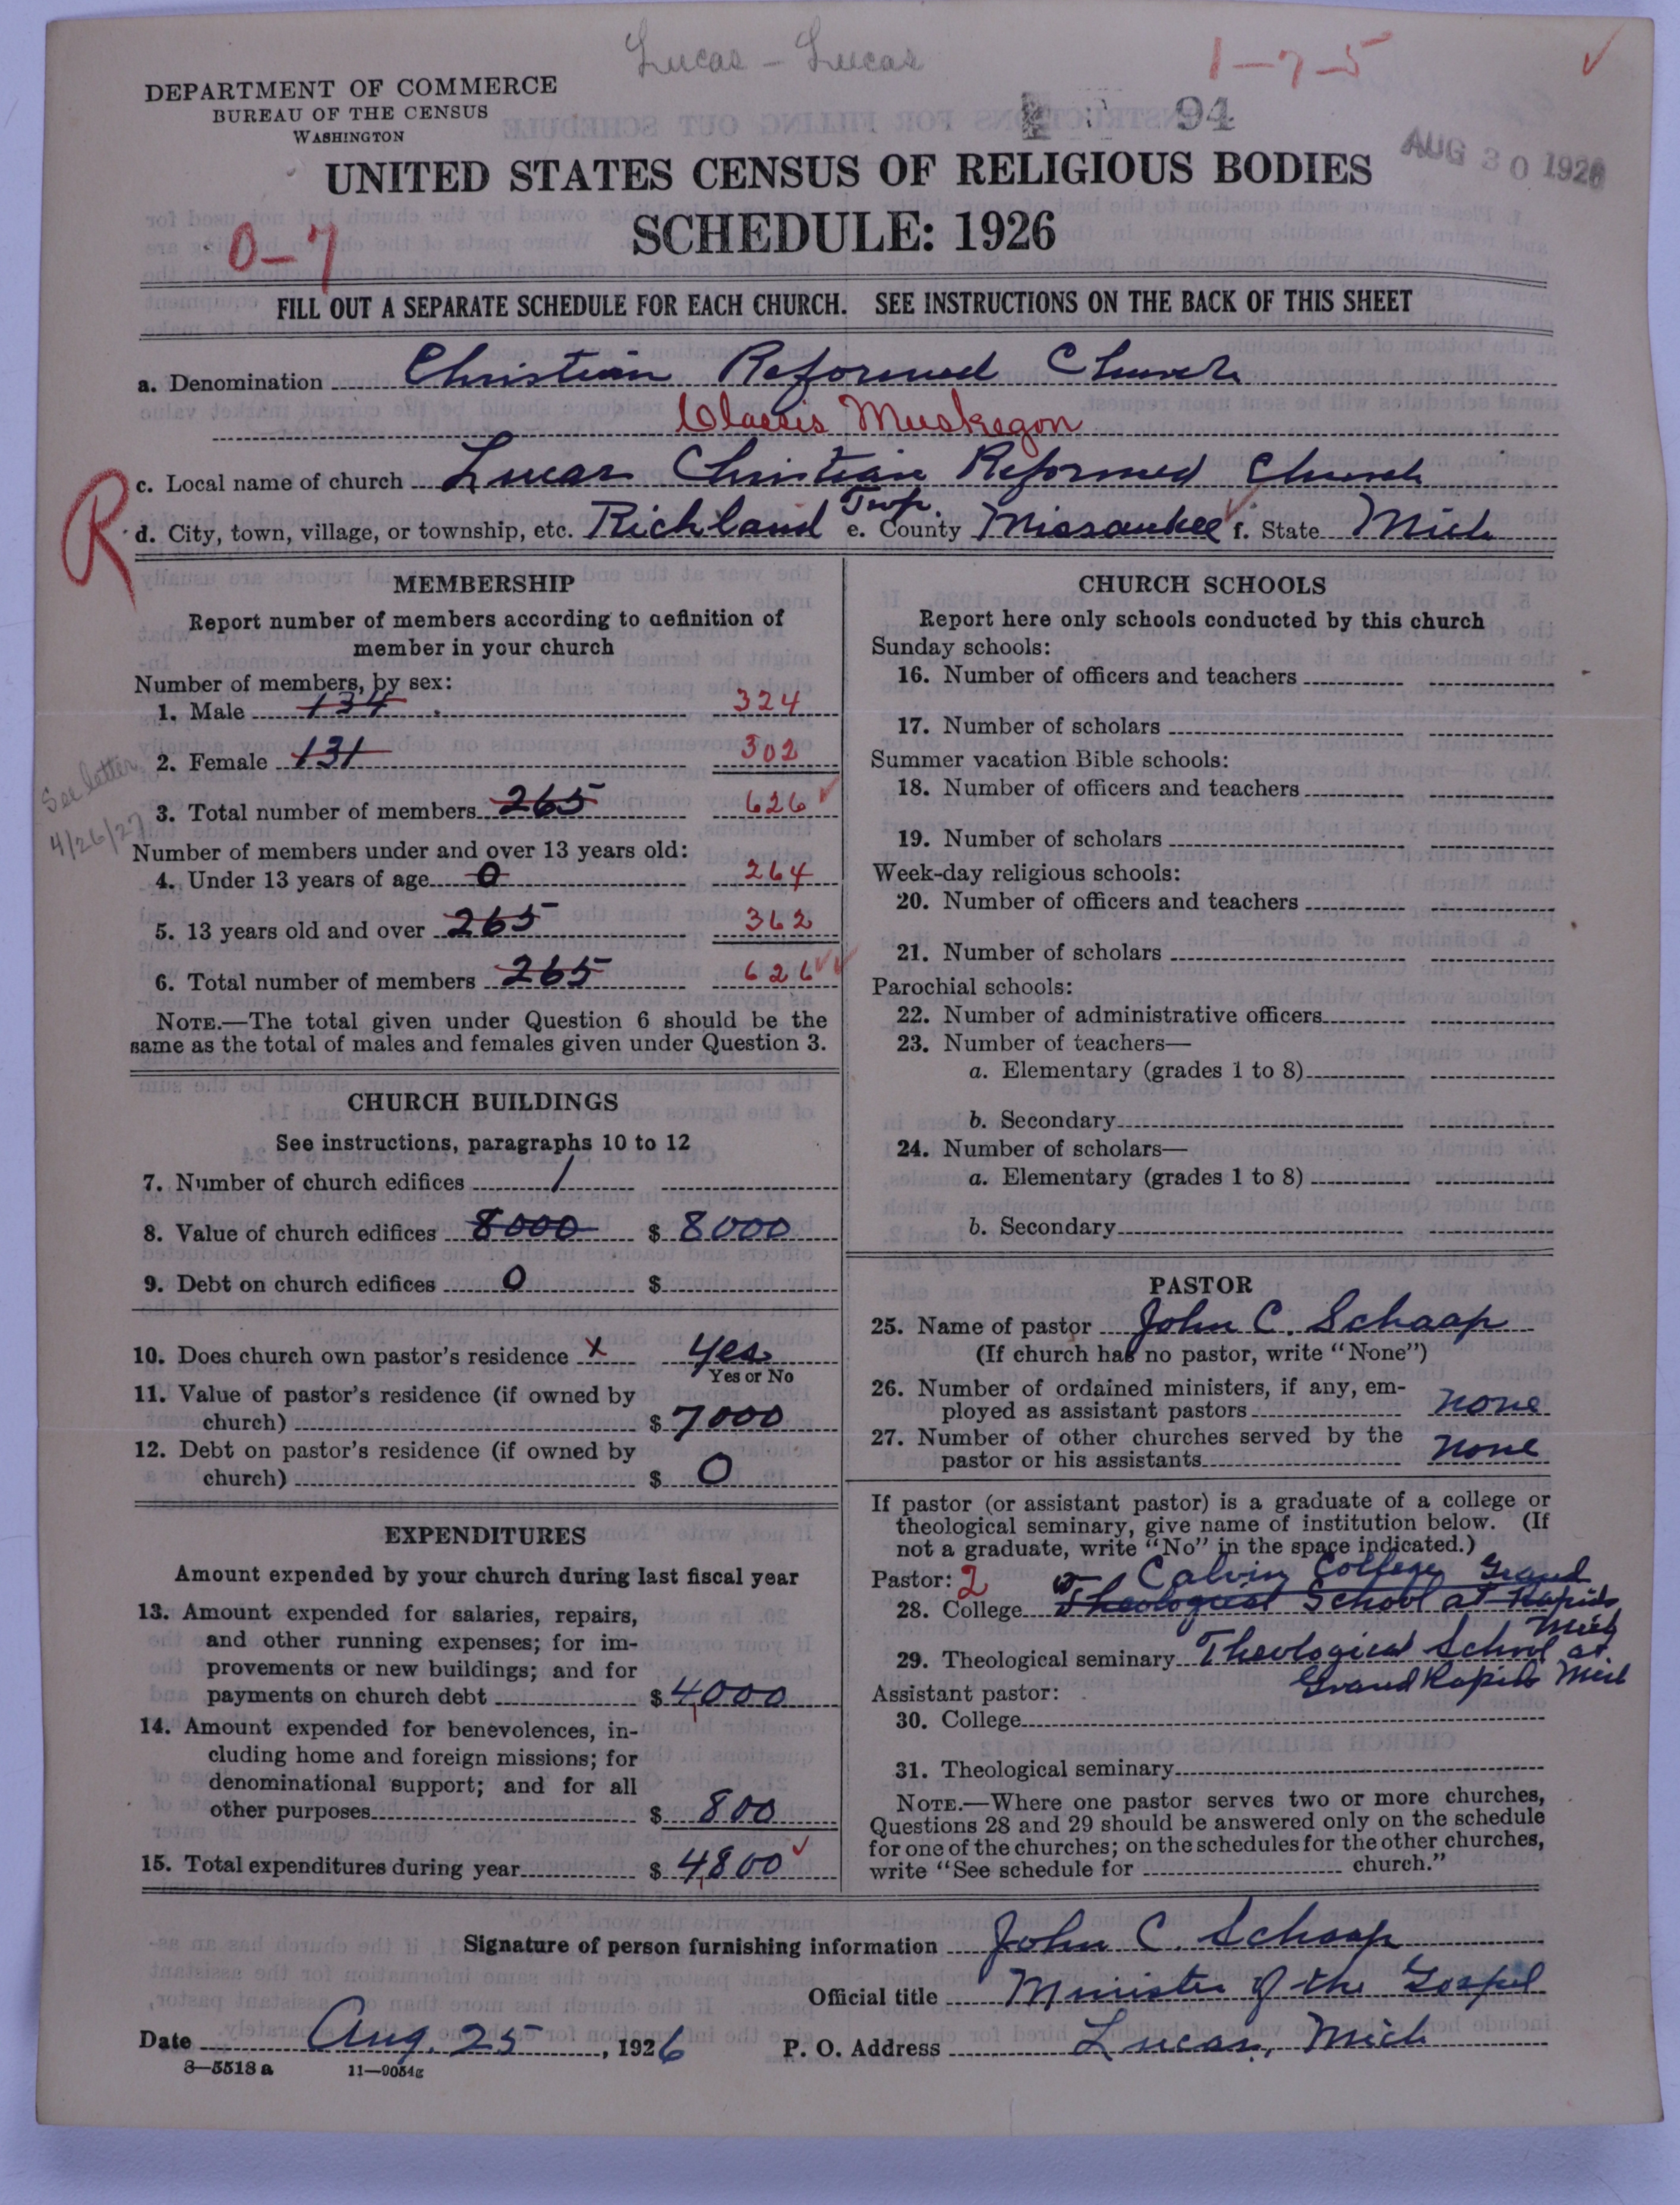 Lucas - Lucas
1-7-5
DEPARTMENT OF COMMERCE
BUREAU OF THE CENSUS
WASHINGTON
94
AUG 30 1926
UNITED STATES CENSUS OF RELIGIOUS BODIES
SCHEDULE: 1926
0-7
FILL OUT A SEPARATE SCHEDULE FOR EACH CHURCH. SEE INSTRUCTIONS ON THE BACK OF THIS SHEET
a. Denomination Christian Reformed Church
Classis Muskegon
R
c. Local name of church Lucas Christian Reformed Church
d. City, town, village, or township, etc. Richland Twp. e. County Missaukee f. State Mich
MEMBERSHIP
Report number of members according to definition of
member in your church
Number of members, by sex:
1. Male 134 324
2. Female 131 302
See letter
4/26/27
3. Total number of members 265 626
Number of members under and over 13 years old:
4. Under 13 years of age 0 264
5. 13 years old and over 265 362
6. Total number of members 265 626
NOTE.—The total given under Question 6 should be the
same as the total of males and females given under Question 3.
CHURCH BUILDINGS
See instructions, paragraphs 10 to 12
7. Number of church edifices 1
8. Value of church edifices 8000 $ 8000
9. Debt on church edifices 0 $
10. Does church own pastor's residence x yes
Yes or No
11. Value of pastor's residence (if owned by
church) $ 7000
12. Debt on pastor's residence (if owned by
church) $ 0
EXPENDITURES
Amount expended by your church during last fiscal year
13. Amount expended for salaries, repairs,
and other running expenses; for im-
provements or new buildings; and for
payments on church debt $ 4000
14. Amount expended for benevolences, in-
cluding home and foreign missions; for
denominational support; and for all
other purposes $ 800
15. Total expenditures during year $ 4800
CHURCH SCHOOLS
Report here only schools conducted by this church
Sunday schools:
16. Number of officers and teachers
17. Number of scholars
Summer vacation Bible schools:
18. Number of officers and teachers
19. Number of scholars
Week-day religious schools:
20. Number of officers and teachers
21. Number of scholars
Parochial schools:
22. Number of administrative officers
23. Number of teachers—
a. Elementary (grades 1 to 8)
b. Secondary
24. Number of scholars—
a. Elementary (grades 1 to 8)
b. Secondary
PASTOR
25. Name of pastor John C. Schaap
(If church has no pastor, write "None")
26. Number of ordained ministers, if any, em-
ployed as assistant pastors none
27. Number of other churches served by the
pastor or his assistants none
If pastor (or assistant pastor) is a graduate of a college or
theological seminary, give name of institution below. (If
not a graduate, write "No" in the space indicated.)
Pastor: 2 Calvin College Grand
28. College Theological School at Rapids
Mich
29. Theological seminary Theological School at
Grand Rapids Mich
Assistant pastor:
30. College
31. Theological seminary
NOTE.—Where one pastor serves two or more churches,
Questions 28 and 29 should be answered only on the schedule
for one of the churches; on the schedules for the other churches,
write "See schedule for church."
Signature of person furnishing information John C. Schaap
Official title Minister of the Gospel
Date Aug. 25, 1926 P. O. Address Lucas, Mich
8—5518 a 11—9054g